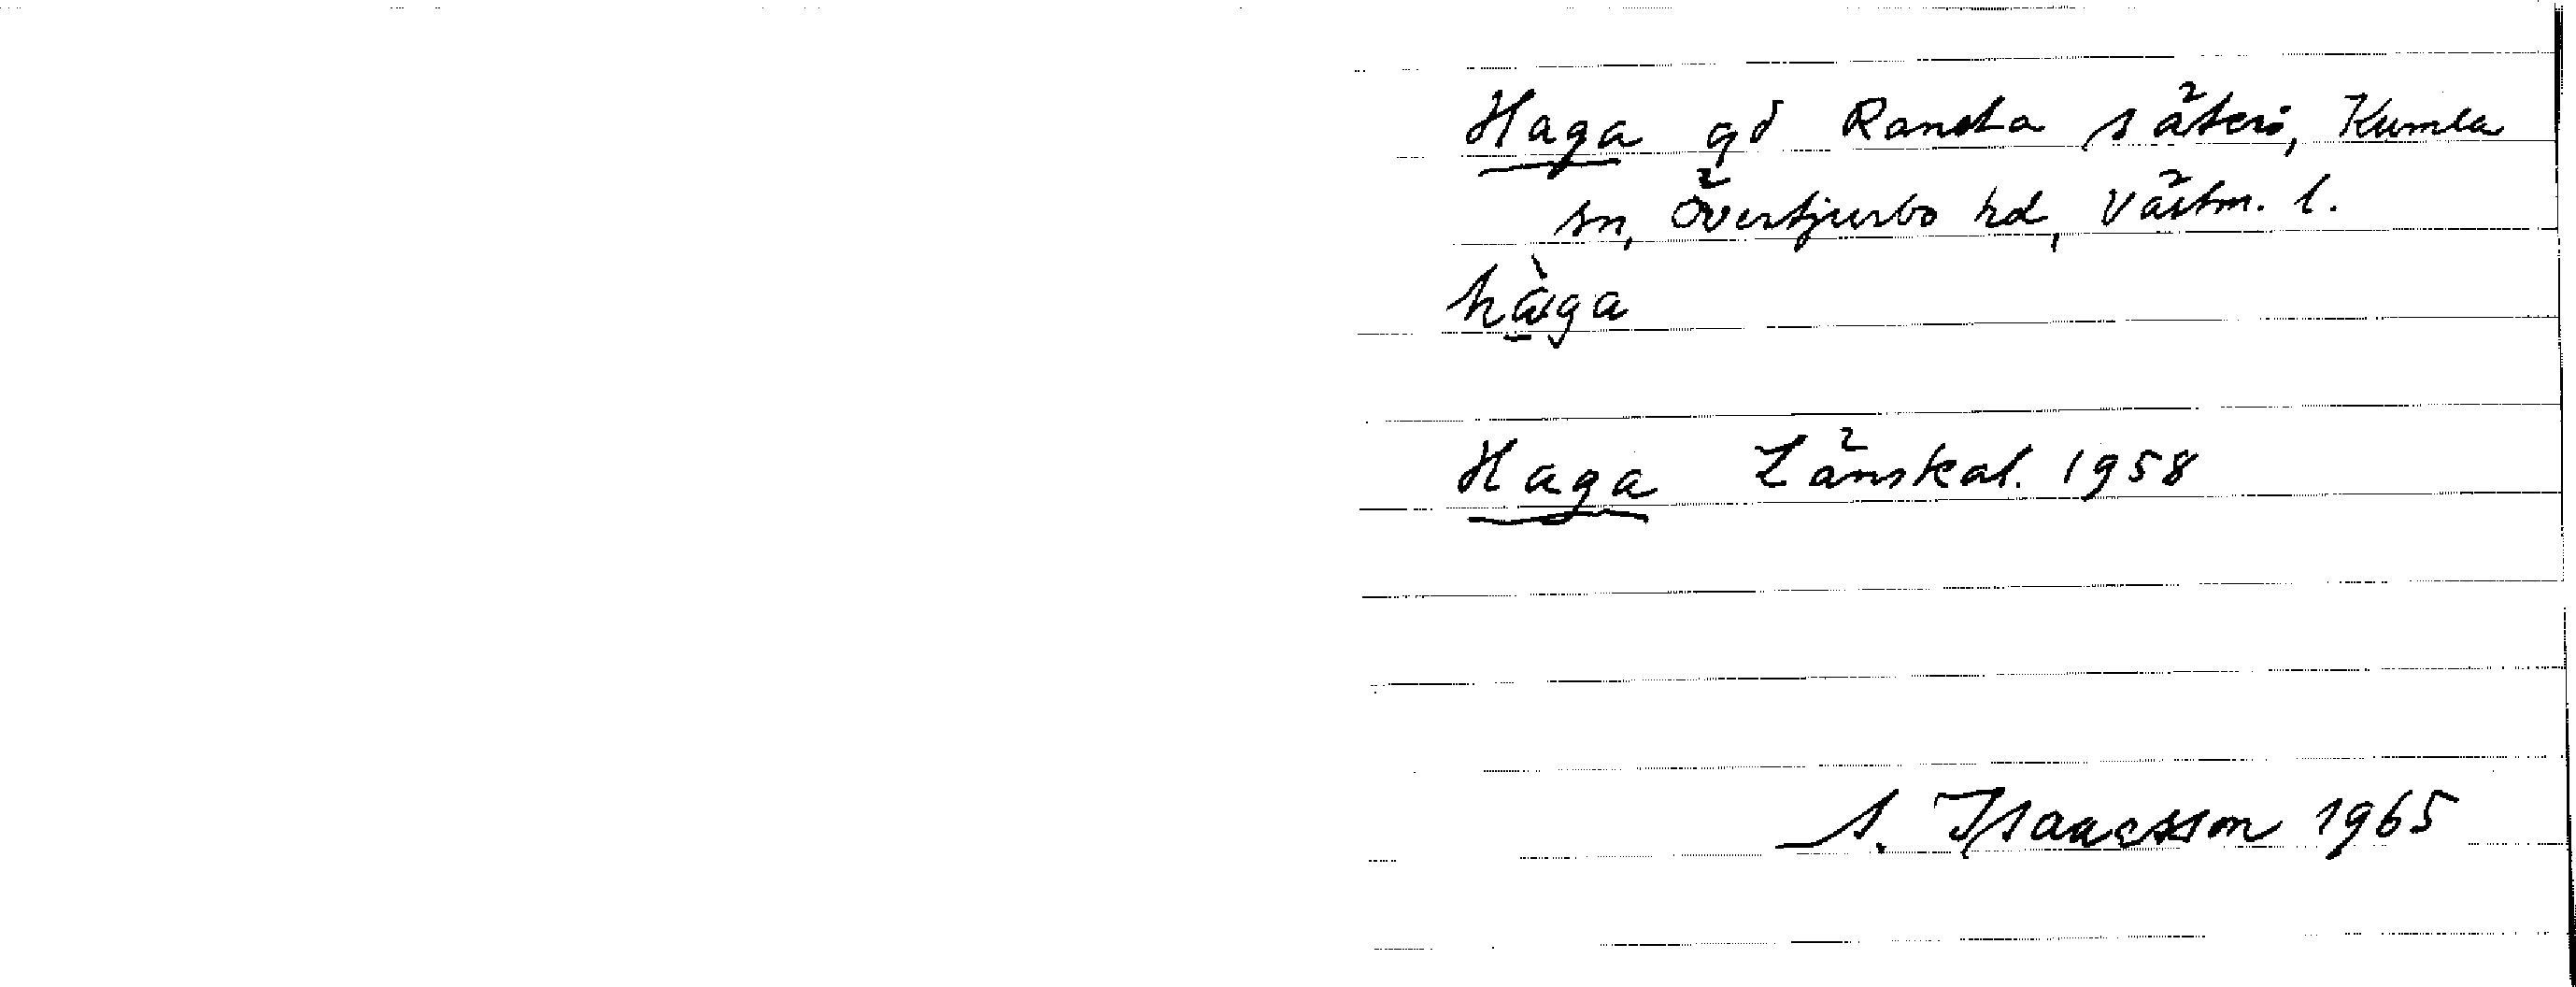 Haga gd Ransta säteri, Kumla
sn, Övertjurbo hd, Västm. l.
hàga
Haga Länskal. 1958
S. Isaacsson 1965